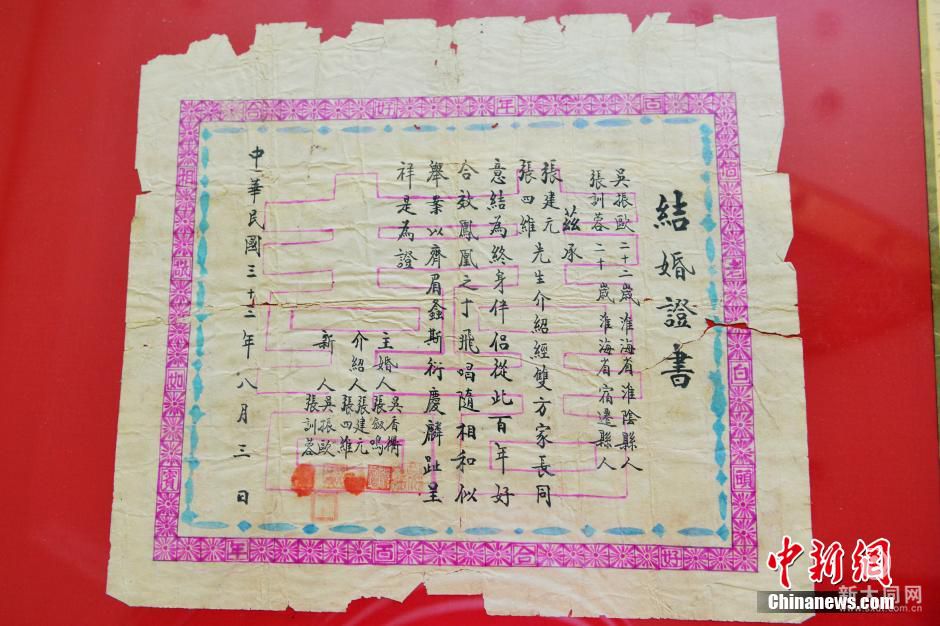 百年好合
偕老白頭
相敬如賓
好合百年
結婚證書
吳振歐二十二歲淮海省淮陰縣人
張訓蓉二十歲淮海省宿遷縣人
茲承
張建元
張四維
先生介紹經雙方家長同
意結為終身伴侶從此百年好
合效鳳凰之于飛唱隨相和似
舉案以齊眉螽斯衍慶麟趾呈
祥是為證
主婚人吳香
張叙鳴
介紹人張建元
張四維
新人吳振歐
張訓蓉
中華民國三十三年八月三日
中新網
新大同网
Chinanews.com